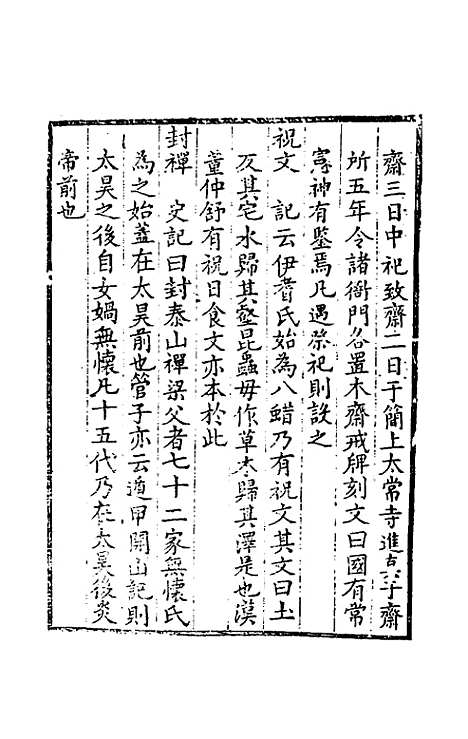 齋三日中祀致齋二日于簡上太常寺進真于齋
所五年令諸衙門各置木齋戒牌刻文曰國有常
憲神有鑒焉凡遇祭祀則設之
祝文　記云伊耆氏始為八蜡乃有祝文其文曰土
反其宅水歸其壑昆蟲毋作草木歸其澤是也漢
董仲舒有祝日食文亦本於此
封禪　史記曰封泰山禪梁父者七十二家無懷氏
為之始蓋在太昊前也管子亦云遁甲開山記則
太昊之後自女媧無懷凡十五代乃在太昊後炎
帝前也